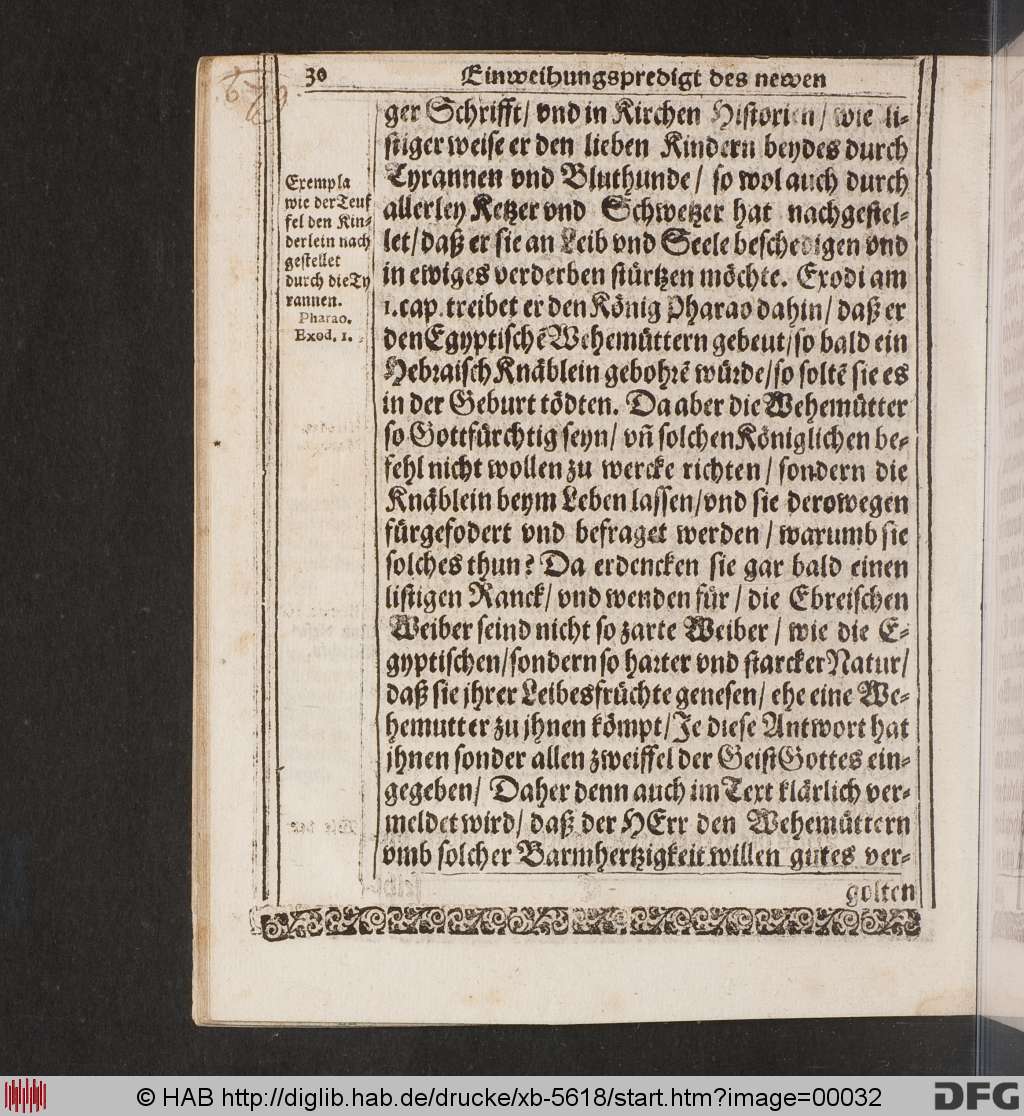 30 Einweihungspredigt des newen
ger Schrifft/ vnd in Kirchen Historien/ wie li-
stiger weise er den lieben Kindern beydes durch
Tyrannen vnd Bluthunde/ so wol auch durch
allerley Ketzer vnd Schwetzer hat nachgestel-
let/ daß er sie an Leib vnd Seele beschedigen vnd
in ewiges verderben stürtzen möchte. Exodi am
1. cap. treibet er den König Pharao dahin/ daß er
den Egyptischẽ Wehemüttern gebeut/ so bald ein
Hebraisch Knäblein gebohrẽ würde/ so soltẽ sie es
in der Geburt tödten. Da aber die Wehemütter
so Gottfürchtig seyn/ vñ solchen Königlichen be-
fehl nicht wollen zu wercke richten/ sondern die
Knäblein beym Leben lassen/ vnd sie derowegen
fürgefodert vnd befraget werden/ warumb sie
solches thun? Da erdencken sie gar bald einen
listigen Ranck/ vnd wenden für/ die Ebreischen
Weiber seind nicht so zarte Weiber/ wie die E-
gyptischen/ sondern so harter vnd starcker Natur/
daß sie jhrer Leibesfrüchte genesen/ ehe eine We-
hemutter zu jhnen kömpt/ Je diese Antwort hat
jhnen sonder allen zweiffel der Geist Gottes ein-
gegeben/ Daher denn auch im Text klärlich ver-
meldet wird/ daß der HErr den Wehemüttern
vmb solcher Barmhertzigkeit willen gutes ver-
golten
Exempla
wie der Teuf
fel den Kin-
derlein nach
gestellet
durch die Ty
rannen.
Pharao.
Exod. 1.
© HAB http://diglib.hab.de/drucke/xb-5618/start.htm?image=00032
DFG